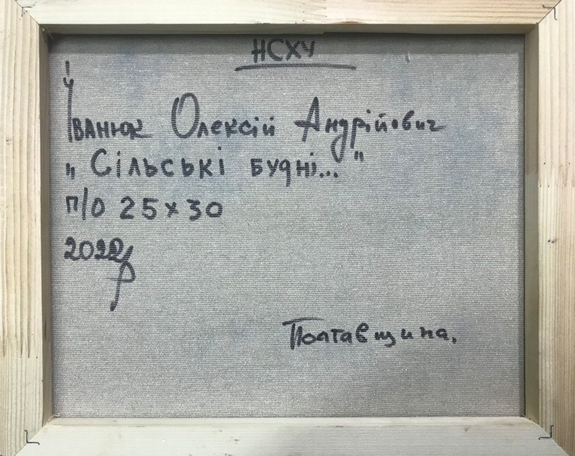 НСХУ
Іванюк Олексій Андрійович
„ Сільські будні... "
п/о 25х30
2022р
Полтавщина.